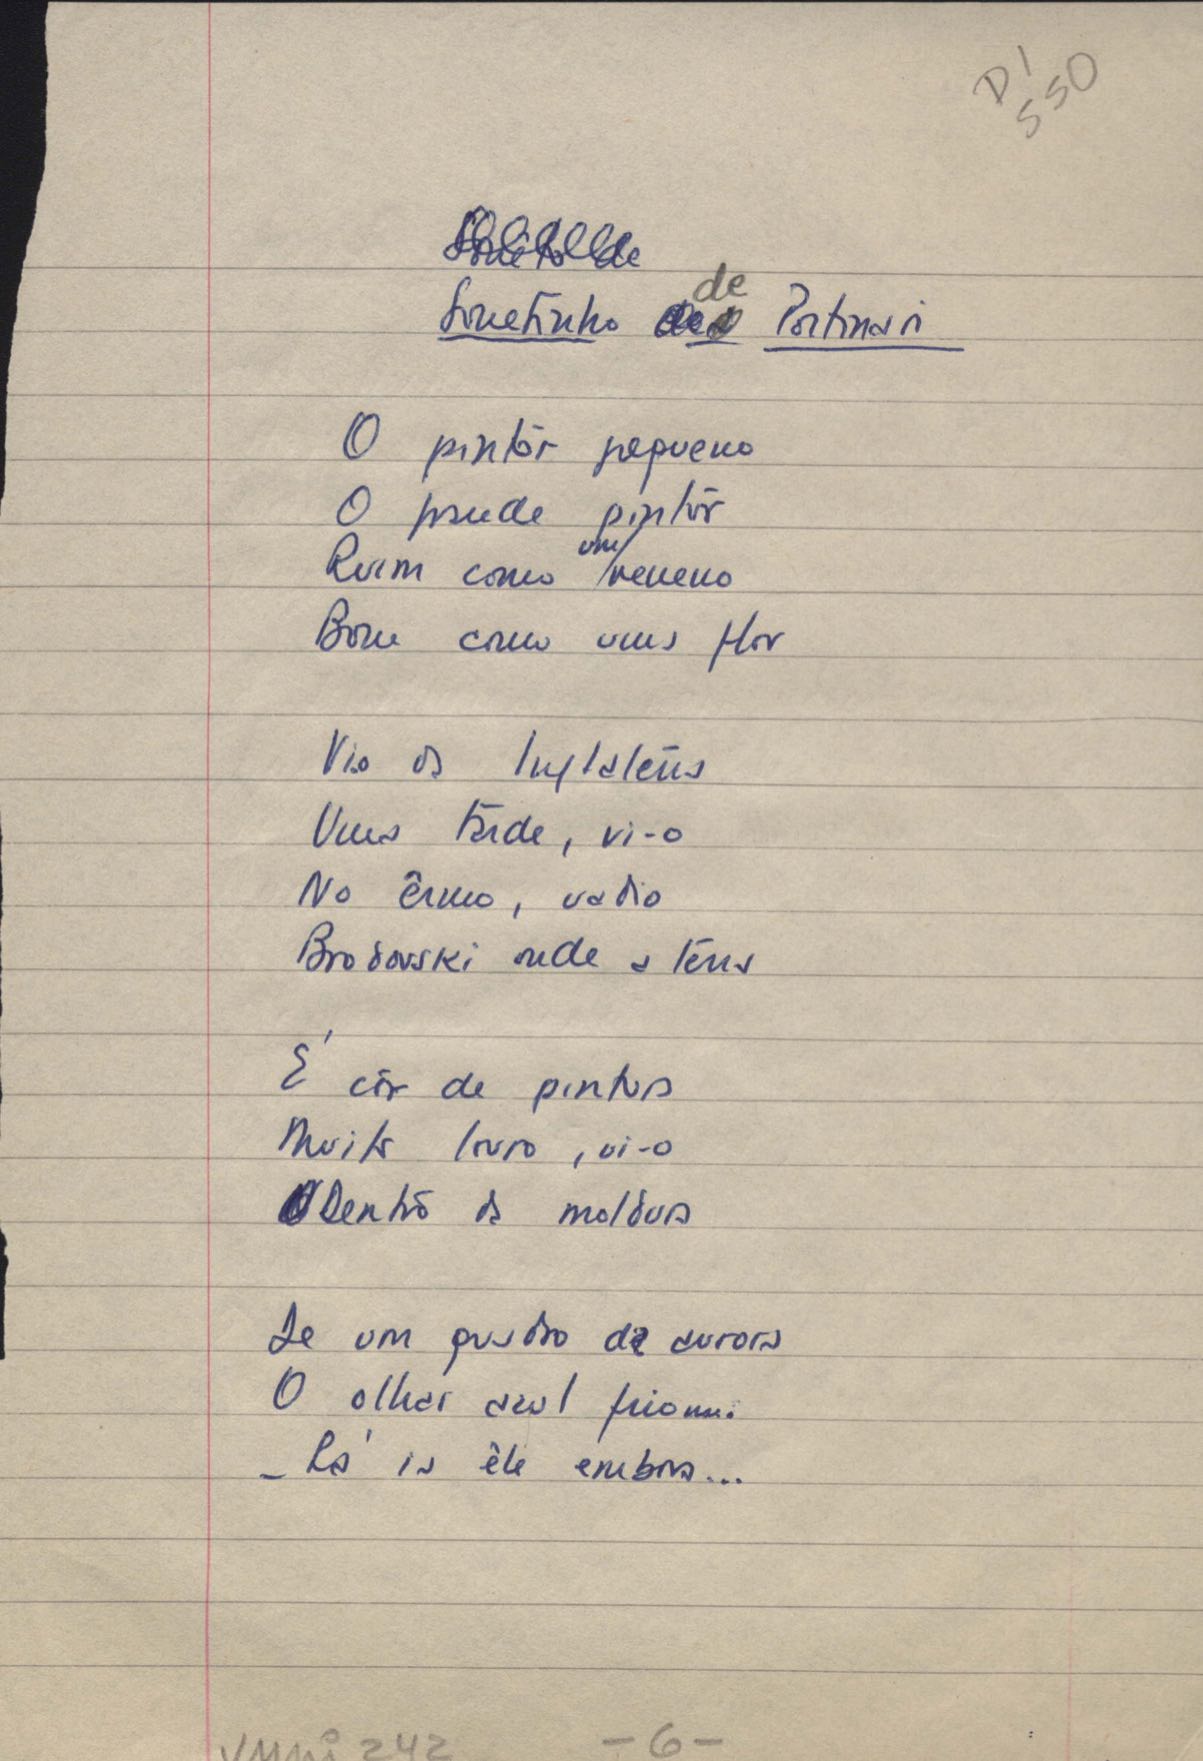 DI
550
Sonetinho de Portinari
O pintôr pequeno
O grande pintôr
Ruim como um veneno
Bom como uma flor
Vio da Inglaterra
Uma tarde, vi-o
No êrmo, vadio
Brodovski onde a terra
É côr de pintura
Muito louro, vi-o
Dentro da moldura
De um quadro de aurora
O olhar azul frio
– Lá ia êle embora...
VMpi 242
-6-